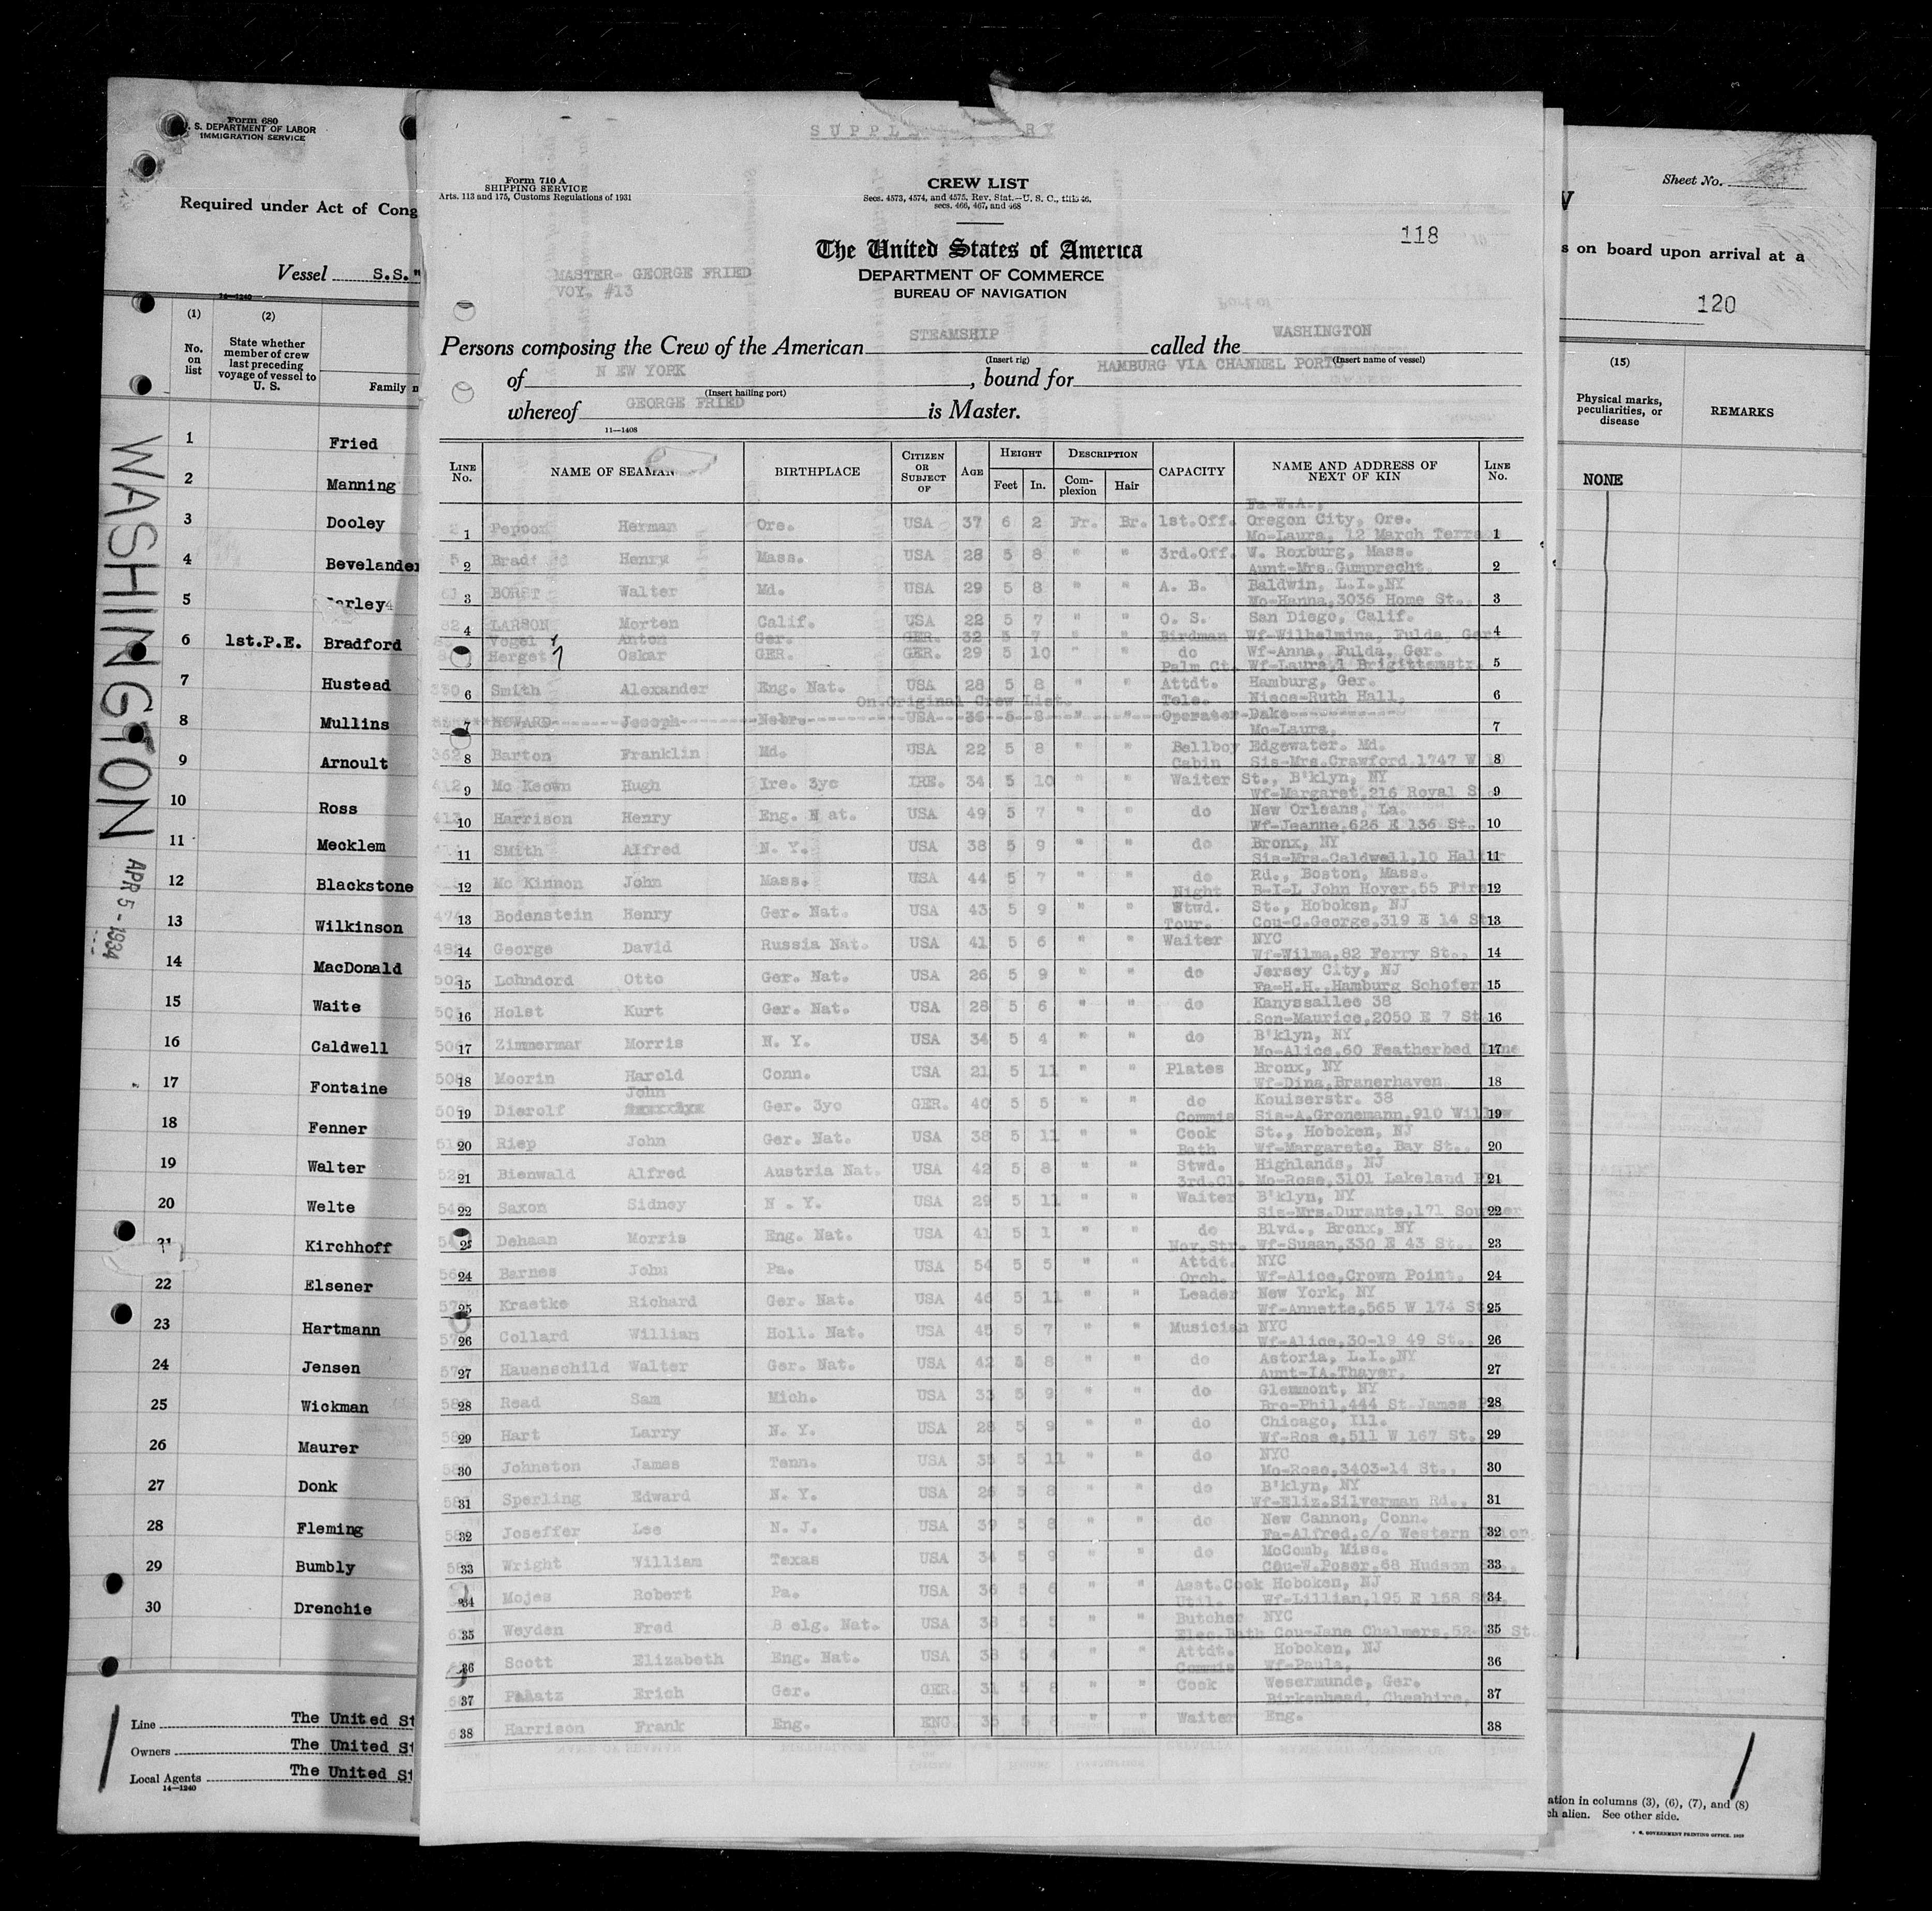 Form 680
S. DEPARTMENT OF LABOR
IMMIGRATION SERVICE
Required under Act of Cong
Vessel S.S. "
14—1240
(1) (2)
No. on list
State whether member of crew last preceding voyage of vessel to U. S.
Family n
1 Fried
2 Manning
3 Dooley
4 Bevelander
5 arley
6 1st.P.E. Bradford
7 Hustead
8 Mullins
9 Arnoult
10 Ross
11 Mecklem
12 Blackstone
13 Wilkinson
14 MacDonald
15 Waite
16 Caldwell
17 Fontaine
18 Fenner
19 Walter
20 Welte
21 Kirchhoff
22 Elsener
23 Hartmann
24 Jensen
25 Wickman
26 Maurer
27 Donk
28 Fleming
29 Bumbly
30 Drenchie
Line The United St
Owners The United St
Local Agents The United St
14—1240
WASHINGTON
APR 5 - 1934
SUPPL RY
Form 710 A
SHIPPING SERVICE
Arts. 113 and 175, Customs Regulations of 1931
CREW LIST
Secs. 4573, 4574, and 4575, Rev. Stat.—U. S. C., title 46,
secs. 466, 467, and 468
118
The United States of America
DEPARTMENT OF COMMERCE
BUREAU OF NAVIGATION
MASTER- GEORGE FRIED
VOY. #13
Persons composing the Crew of the American STEAMSHIP called the WASHINGTON
(Insert rig) (Insert name of vessel)
of N EW YORK, bound for HAMBURG VIA CHANNEL PORTS
(Insert hailing port)
whereof GEORGE FRIED is Master.
11—1408
LINE No. NAME OF SEAMAN BIRTHPLACE CITIZEN OR SUBJECT OF AGE HEIGHT Feet In. DESCRIPTION Complexion Hair CAPACITY NAME AND ADDRESS OF NEXT OF KIN LINE No.
Fa-W.A.,
1 Pepoon Herman Ore. USA 37 6 2 Fr. Br. 1st.Off. Oregon City, Ore. 1
Mo-Laura, 12 March Terra
2 Brad d Henry Mass. USA 28 5 8 " " 3rd.Off. W. Roxburg, Mass. 2
Aunt-Mrs.Gumprecht,
3 BORST Walter Md. USA 29 5 8 " " A. B. Baldwin, L.I.,NY 3
Mo-Hanna,3036 Home St.,
4 LARSON Morten Calif. USA 22 5 7 " " O. S. San Diego, Calif. 4
Vogel Anton Ger. GER. 32 5 7 " " Birdman Wf-Wilhelmina, Fulda, Ger
Herget Oskar GER. GER. 29 5 10 " " do Wf-Anna, Fulda, Ger. 5
Palm Ct. Wf-Laura,1 Brigittenstr.
6 Smith Alexander Eng. Nat. USA 28 5 8 " " Attdt. Hamburg, Ger. 6
On Original Crew List. Tele. Niece-Ruth Hall,
7 HOWARD Joseph Nebr. USA 36 5 8 " " Operator Dake 7
Mo-Laura,
8 Barton Franklin Md. USA 22 5 8 " " Bellboy Edgewater. Md. 8
Cabin Sis-Mrs.Crawford,1747 W
9 Mc Keown Hugh Ire. 3yc IRE. 34 5 10 " " Waiter St., B'klyn, NY 9
Wf-Margaret,216 Royal S
10 Harrison Henry Eng. N at. USA 49 5 7 " do New Orleans, La. 10
Wf-Jeanne,626 E 136 St.
11 Smith Alfred N. Y. USA 38 5 9 " " do Bronx, NY 11
Sis-Mrs.Caldwell,10 Hal
12 Mc Kinnon John Mass. USA 44 5 7 " " do Rd., Boston, Mass. 12
Night B-I-L John Hoyer,55 Firs
13 Bodenstein Henry Ger. Nat. USA 43 5 9 " " Stwd. St., Hoboken, NJ 13
Tour. Cou-C.George,319 E 14 St
14 George David Russia Nat. USA 41 5 6 " " Waiter NYC 14
Wf-Wilma,82 Ferry St.,
15 Lohndord Otto Ger. Nat. USA 26 5 9 " " do Jersey City, NJ 15
Fa-H.H.,Hamburg Schofer
16 Holst Kurt Ger. Nat. USA 28 5 6 " " do Kanyssallee 38 16
Son-Maurice,2050 E 7 St
17 Zimmermar Morris N. Y. USA 34 5 4 " " do B'klyn, NY 17
Mo-Alice,60 Featherbed Lane
18 Moorin Harold Conn. USA 21 5 11 " " Plates Bronx, NY 18
Wf-Dina,Branerhaven
19 Dierolf John Ger. 3yc GER. 40 5 5 " " do Kouiserstr. 38 19
Commis Sis-A.Gronemann,910 Willow
20 Riep John Ger. Nat. USA 38 5 11 " " Cook St., Hoboken, NJ 20
Bath Wf-Margarete, Bay St.,
21 Bienwald Alfred Austria Nat. USA 42 5 8 " " Stwd. Highlands, NJ 21
3rd.Cl. Mo-Rose,3101 Lakeland
22 Saxon Sidney N . Y. USA 29 5 11 " " Waiter B'klyn, NY 22
Sis-Mrs.Durante,171 Sou
23 Dehaan Morris Eng. Nat. USA 41 5 1 " " do Blvd., Bronx, NY 23
Nov.Str. Wf-Susan,330 E 43 St.,
24 Barnes John Pa. USA 54 5 5 " " Attdt. NYC 24
Orch. Wf-Alice,Crown Point,
25 Kraetke Richard Ger. Nat. USA 46 5 11 " " Leader New York, NY 25
Wf-Annette,565 W 174 St
26 Collard William Holl. Nat. USA 45 5 7 " " Musician NYC 26
Wf-Alice,30-19 49 St.,
27 Hauenschild Walter Ger. Nat. USA 42 5 8 " " do Astoria, L.I.,NY 27
Aunt-IA.Thayer,
28 Read Sam Mich. USA 33 5 9 " " do Glemmont, NY 28
Bro-Phil,444 St James
29 Hart Larry N. Y. USA 28 5 9 " " do Chicago, Ill. 29
Wf-Ros e,511 W 167 St.
30 Johnston James Tenn. USA 35 5 11 " " do NYC 30
Mo-Rose,3403-14 St.,
31 Sperling Edward N. Y. USA 26 5 8 " " do B'klyn, NY 31
Wf-Eliz.Silverman Rd.,
32 Joseffer Lee N. J. USA 39 5 8 " " do New Cannon, Conn. 32
Fa-Alfred,c/o Western Union
33 Wright William Texas USA 34 5 9 " " do McComb, Miss. 33
Cou-W.Poser,68 Hudson
34 Mojes Robert Pa. USA 36 5 6 " " Asst.Cook Hoboken, NJ 34
Util. Wf-Lillian,195 E 158
35 Weyden Fred B elg. Nat. USA 38 5 5 " " Butcher NYC 35
Elec.Bath Cou-Jane Chalmers,52- St
36 Scott Elizabeth Eng. Nat. USA 38 5 4 " " Attdt. Hoboken, NJ 36
Commis Wf-Paula,
37 Paatz Erich Ger. GER. 31 5 8 " " Cook Wesermunde, Ger. 37
Birkenhead, Cheshire,
38 Harrison Frank Eng. ENG 35 5 8 " " Waiter Eng. 38
Sheet No.
s on board upon arrival at a
120
(15)
Physical marks, peculiarities, or disease
REMARKS
NONE
ation in columns (3), (6), (7), and (8)
ch alien. See other side.
GOVERNMENT PRINTING OFFICE